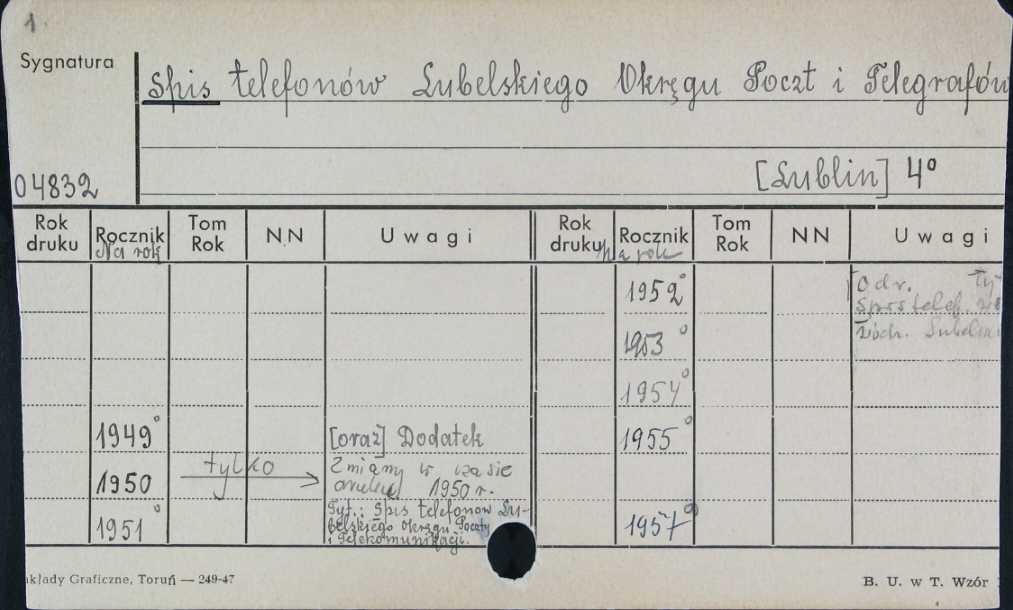 1.
Sygnatura
Spis telefonów Lubelskiego Okręgu Poczt i Telegrafów
[Lublin] 4°
04832
Rok druku Rocznik Tom Rok NN Uwagi Rok druku Rocznik Tom Rok NN Uwagi
Na rok Na rok
1952° Odr. ty
Spis telef.
1953° wódz.
1954°
1949° [oraz] Dodatek 1955°
1950 tylko Zmiany w czasie
1950 r.
1951° Tyt.: Spis telefonów Lu-
belskiego Okręgu Poczty
i Telekomunikacji.
1957°
kłady Graficzne, Toruń — 249-47
B. U. w T. Wzór